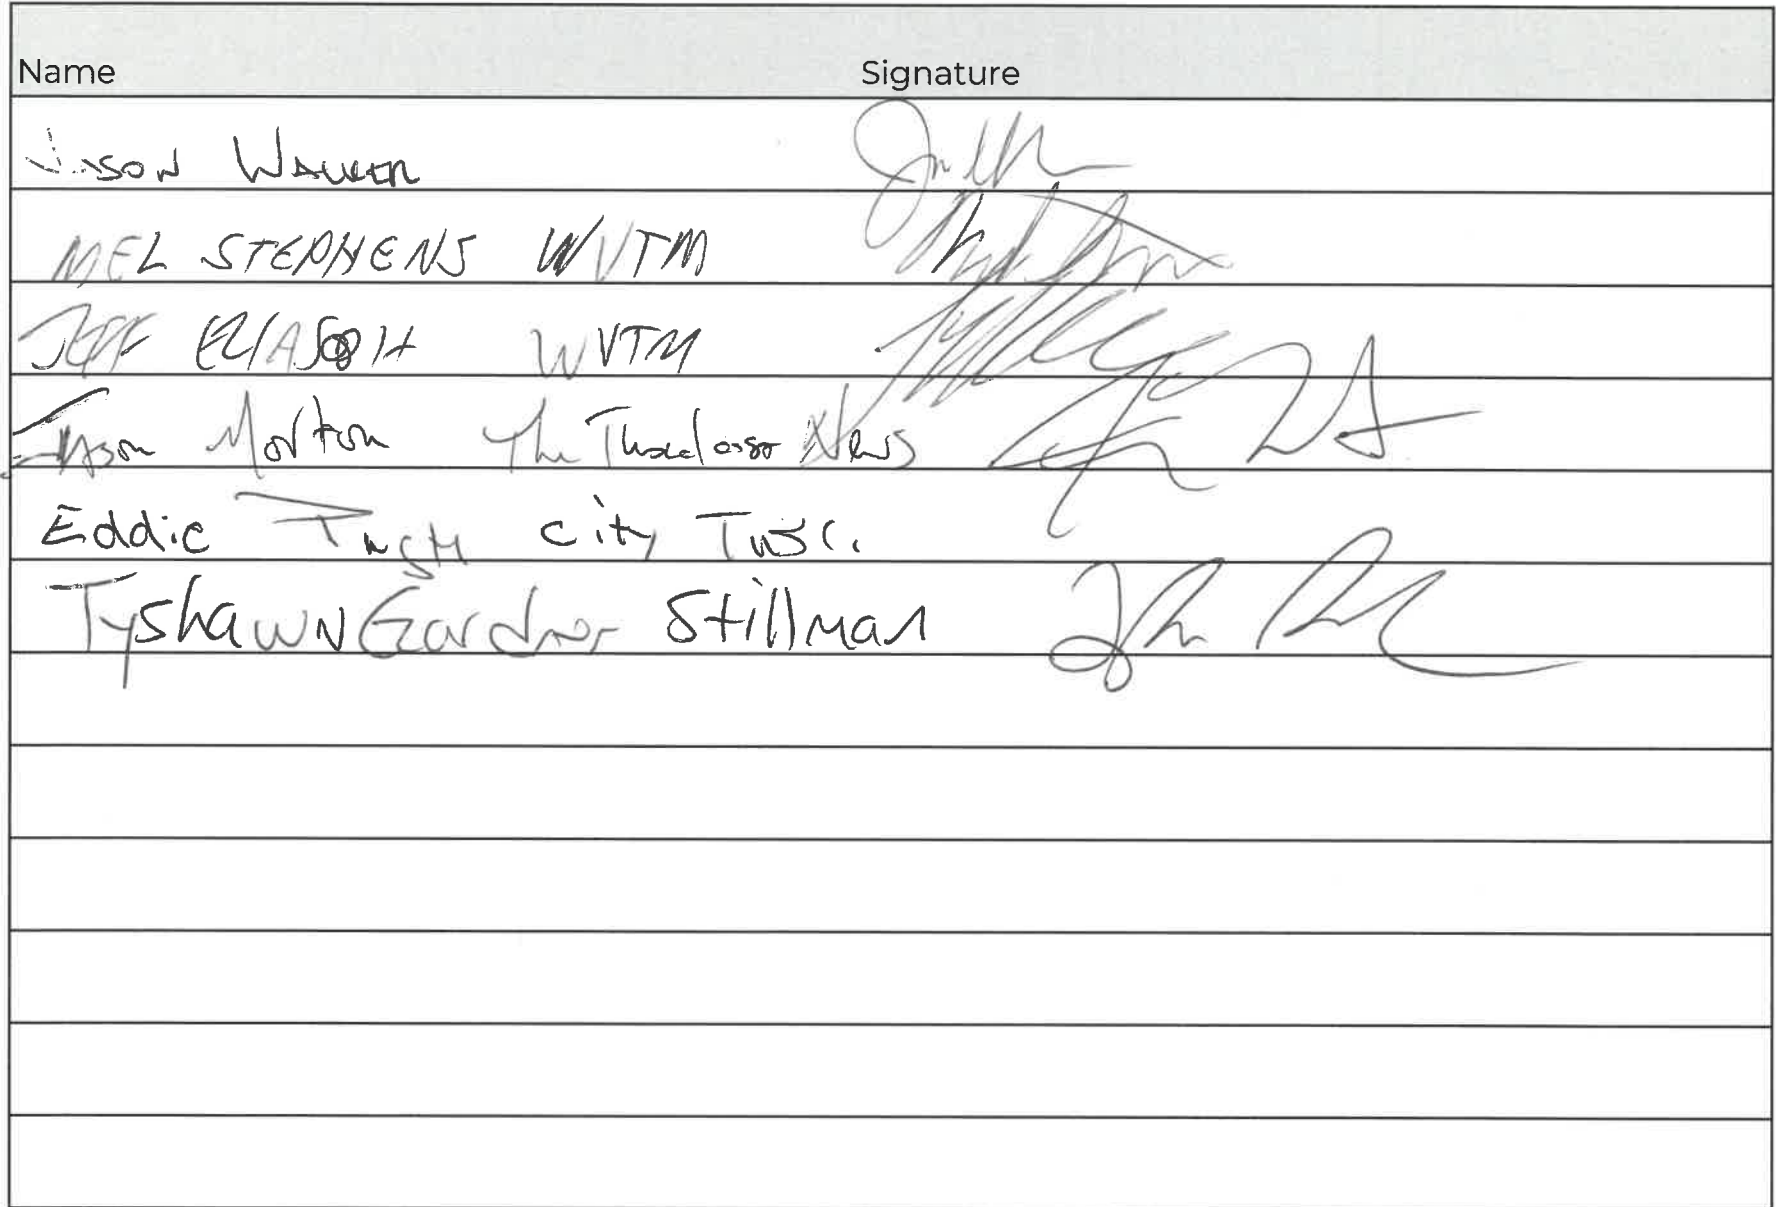 Name Signature
Jason Walker
MEL STEPHENS WVTM
JEFF ELIASOPH WVTM
Jason Morton The Tuscaloosa News
Eddie Pugh City Tusc.
Tyshawn Gardner Stillman